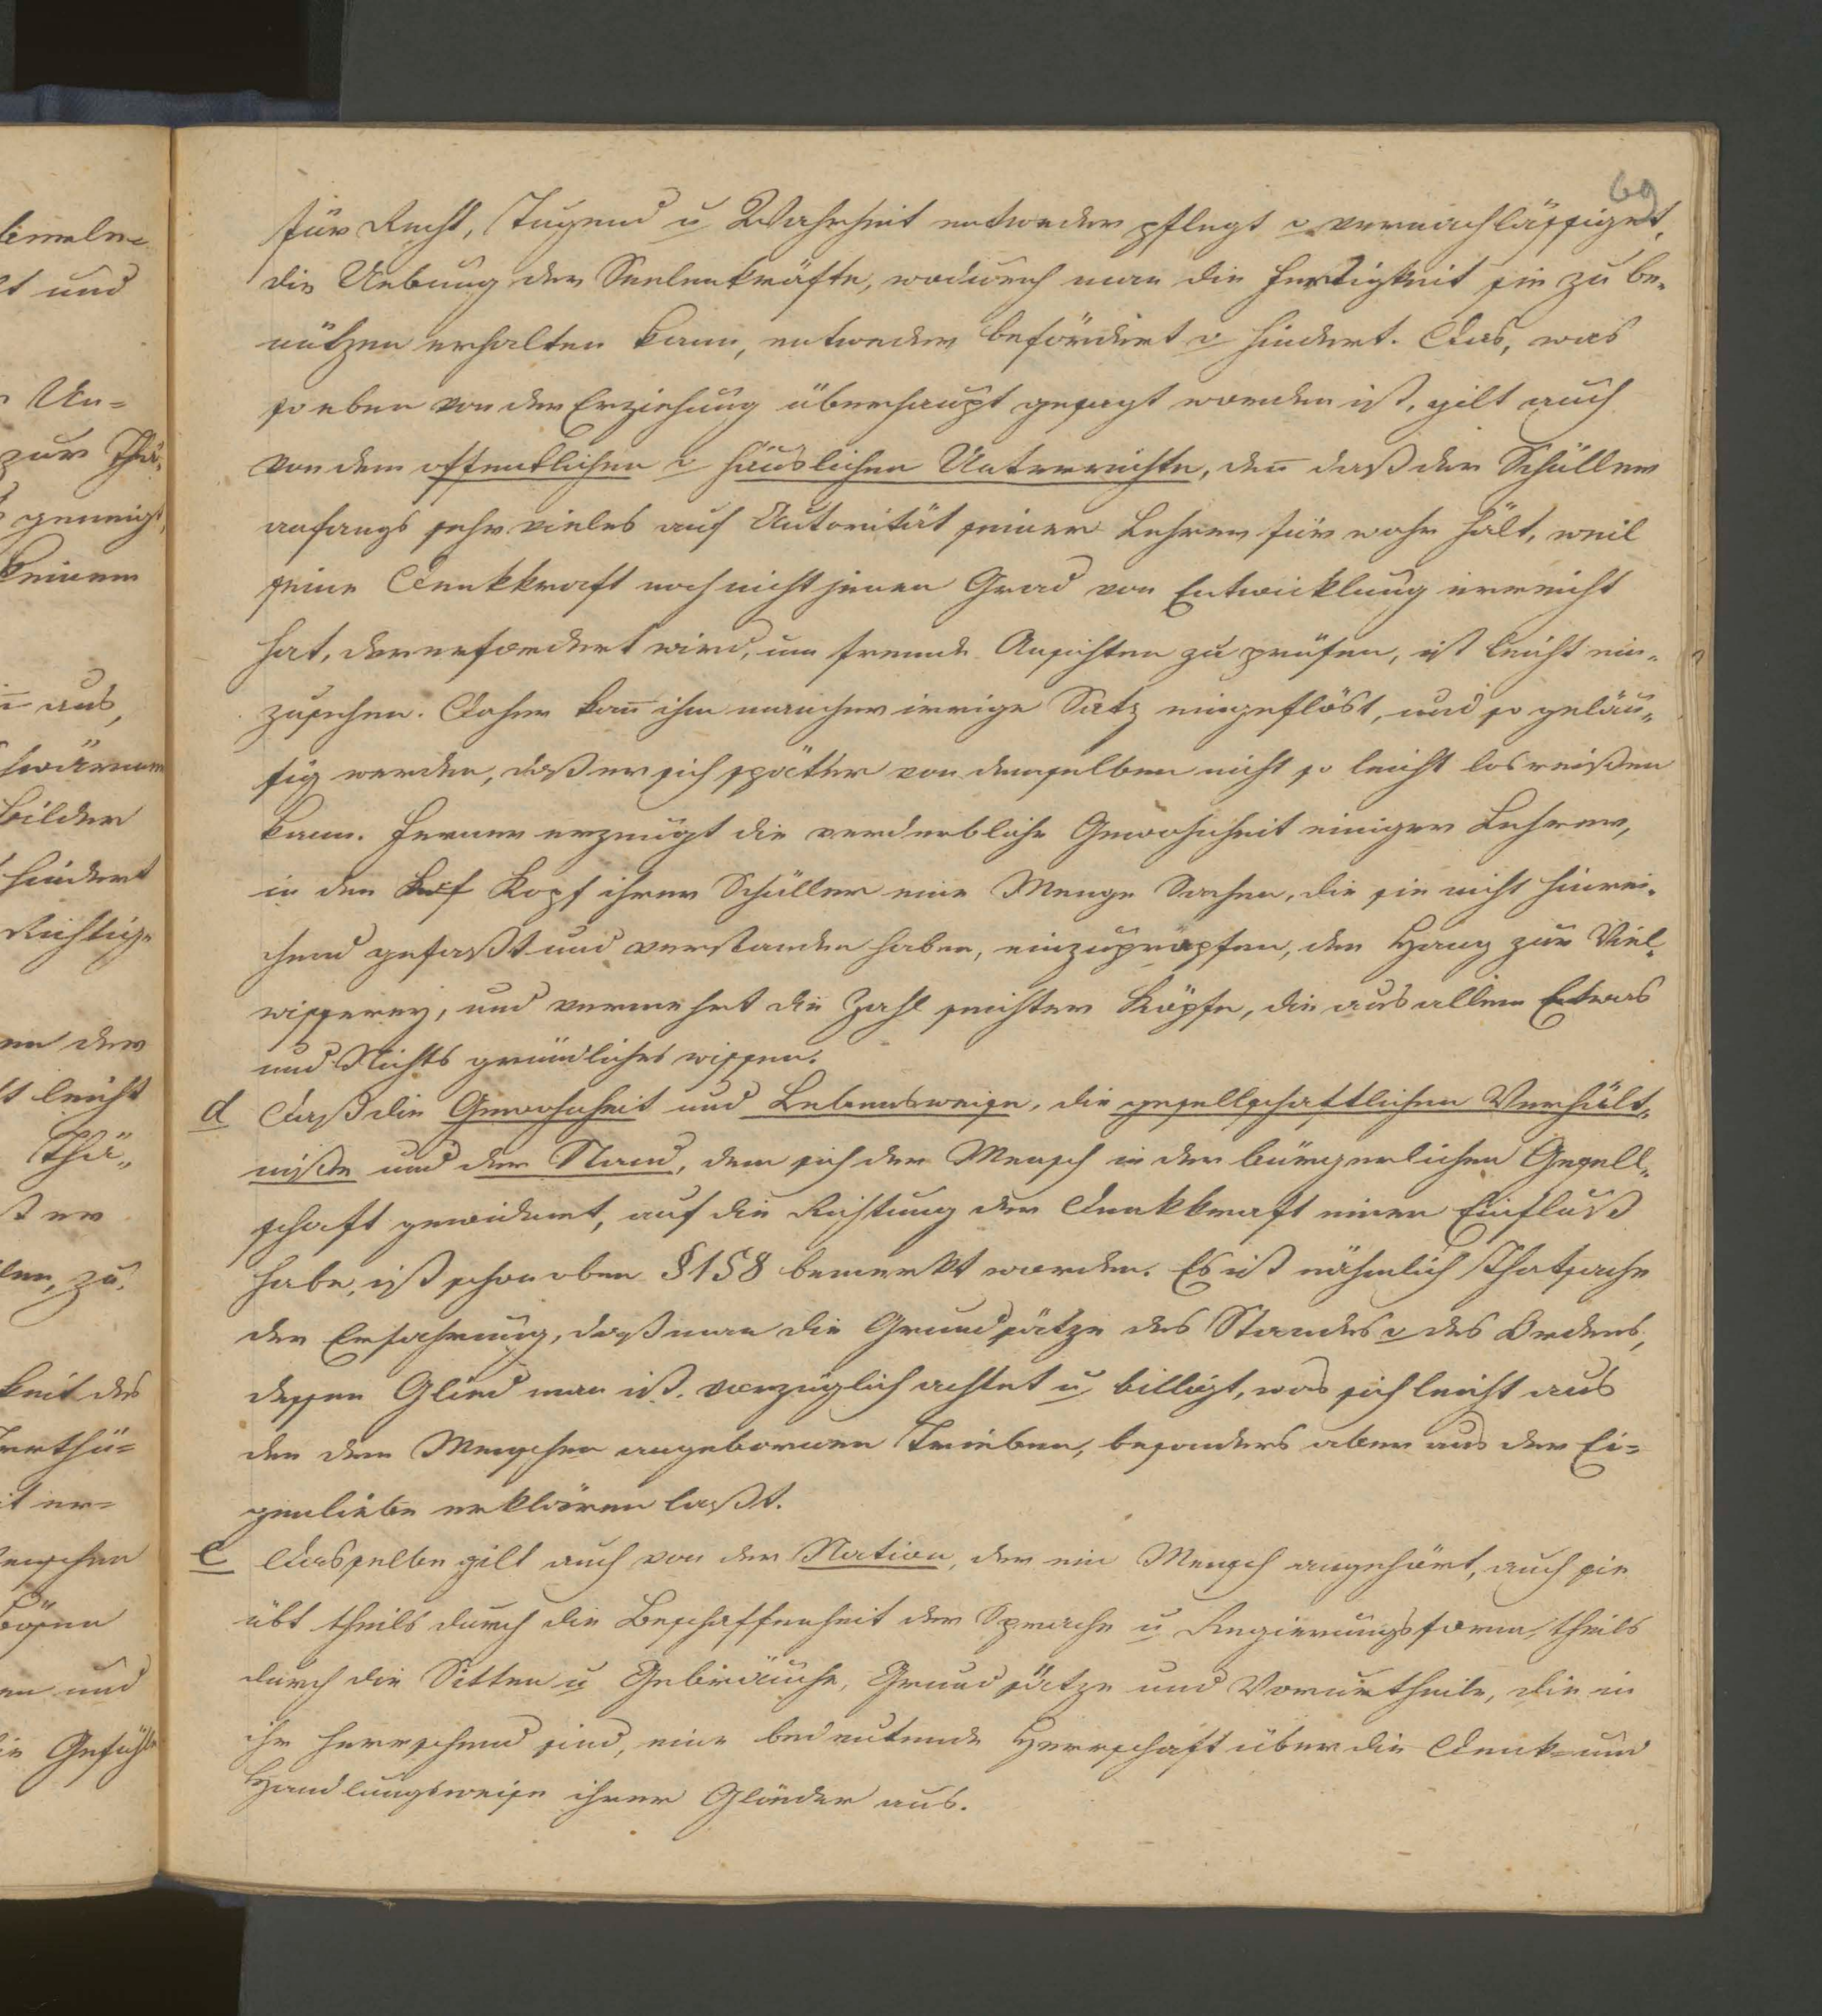 69
für Recht, Tugend u Wahrheit entweder pflegt o vernachlässiget,
die Uebung der Seelenkräfte, wodurch man die Fertigkeit sie zu be„
nützen erhalten kann, entweder befördert o hindert. Das, was
so eben von der Erziehung überhaupt gesagt worden ist, gilt auch
von dem öffentlichen o häuslichen Unterrichte, deñ daß der Schüller
anfangs sehr vieles auf Autorität seiner Lehrer für wahr hält, weil
seine Denkkraft noch nicht jenen Grad von Entwicklung erreicht
hat, der erfordert wird, um fremde Ansichten zu prüfen, ist leicht ein„
zusehen. Daher kañ ihm mancher irrige Satz eingeflöst, und so geläu„
fig werden, daß er sich spätter von demselben nicht so leicht losreißen
kann. Ferner erzeugt die verderbliche Gewohnheit einiger Lehrer,
in den Kopf ihrer Schüller eine Menge Sachen, die sie nicht hinrei„
chend gefaßt und verstanden haben, einzupropfen, den Hang zur Viel„
wisserey, und vermehrt die Zahl seichter Köpfe, die aus allem Etwas
und Nichts gründliches wissen.
d Daß die Gewohnheit und Lebensweise, die gesellschaftlichen Verhält„
niße und der Stand, dem sich der Mensch in der bürgerlichen Gesell„
schaft gewidmet, auf die Richtung der Denkkraft einen Einfluß
habe, ist schon oben § 158 bemerkt worden. Es ist nähmlich Thatsache
der Erfahrung, daß man die Grundsätze des Standes o des Ordens,
dessen Glied man ist, vorzüglich achtet u billigt, was sich leicht aus
den dem Menschen angebornen Trieben, besonders aber aus der Ei=
genliebe erklären laßt.
e Dasselbe gilt auch von der Nation, der ein Mensch angehört, auch sie
übt theils durch die Beschaffenheit der Sprache u Regierungsform, theils
durch die Sitten u Gebräuche, Grundsätze und Vorurtheile, die in
ihr herrschend sind, eine bedeutende Herrschaft über die Denk= und
Handlungsweise ihrer Glieder aus.